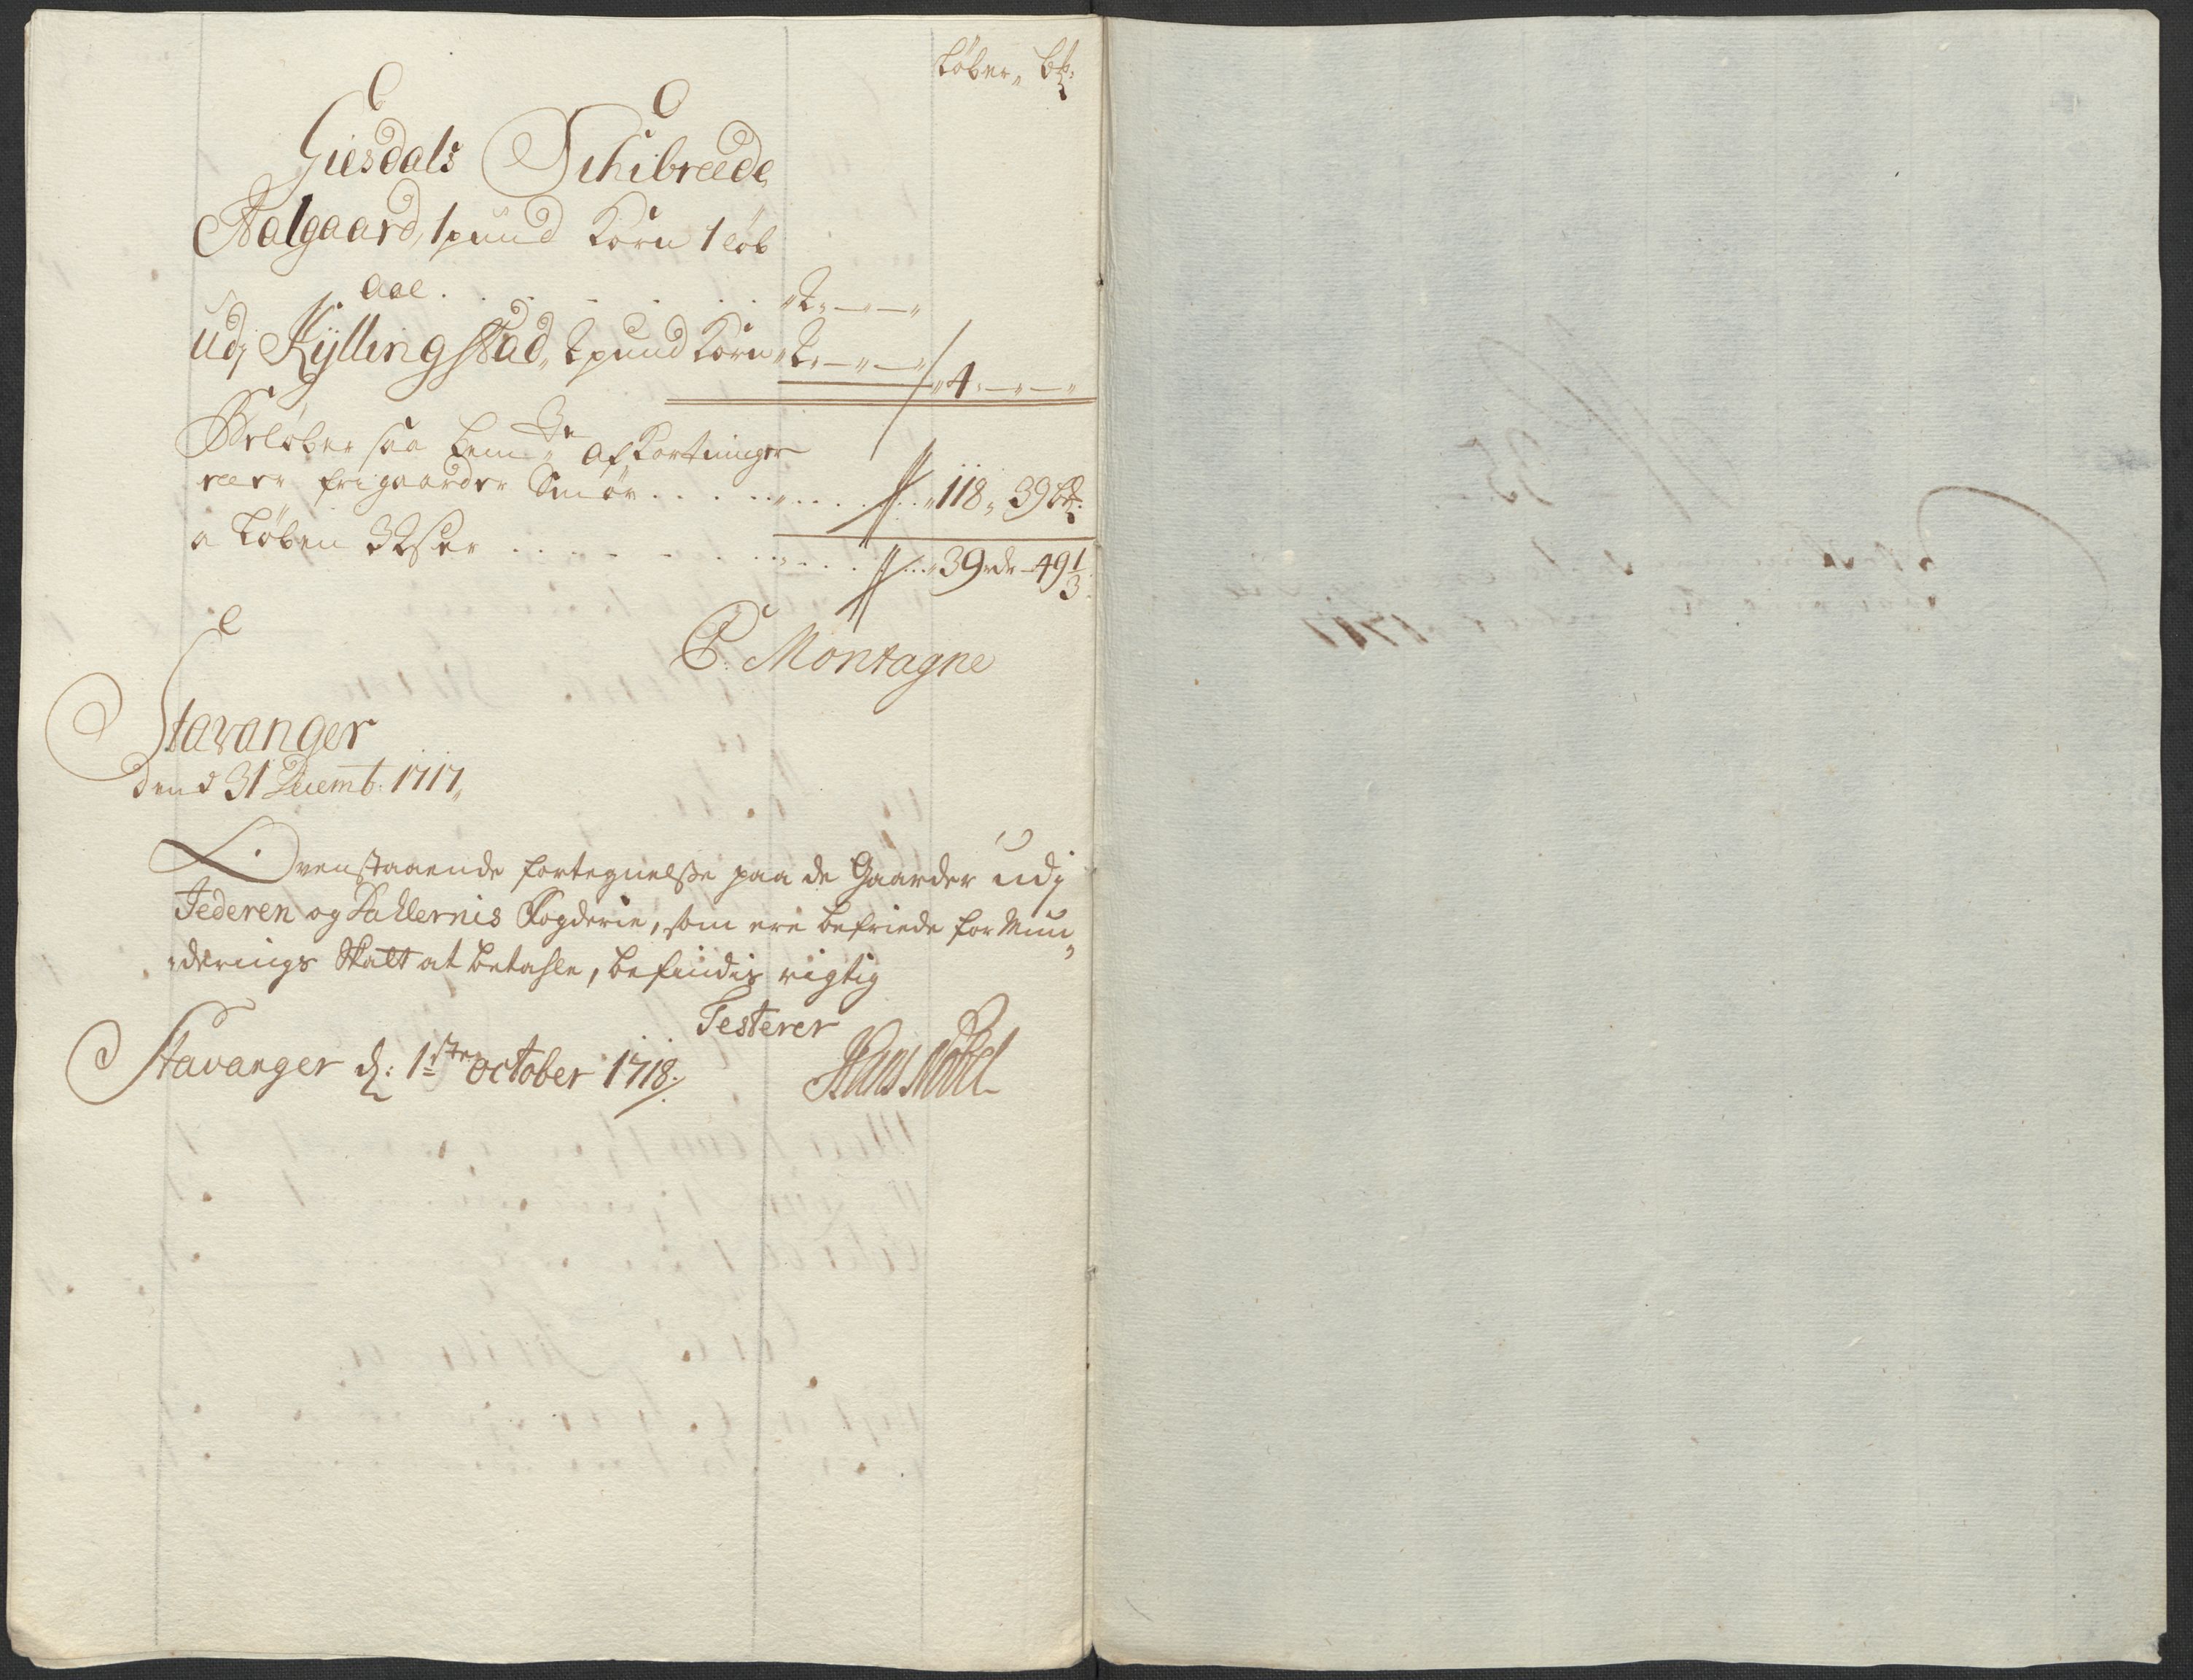 Løber„ b℔:
Giesdals Schibreede
Aalgaard, 1 pund Korn 1 løb
aae . . . . . . „2„—„—„
Udj Kyllingstad, 2 pund Korn „2„—„—„
„4„—„—„
Beløber saa bem.te afkortninger
reer frigaarder Smør . . . . . . . . „118„ 39 b℔:
a Løben 32 s er . . . . . . . . „39 rdr 49 1/3
P. Montagne
Stavanger
dend 31 Decemb: 1717„
Ovenstaaende fortegnelse paa de Gaarder udj
Jederen og Dallernis Fogderie, som ere befriede for Mun„
derings Skatt at betahle, befindis rigtig
Testerer
Stavanger d: 1ste October 1718.
Hans Nobel